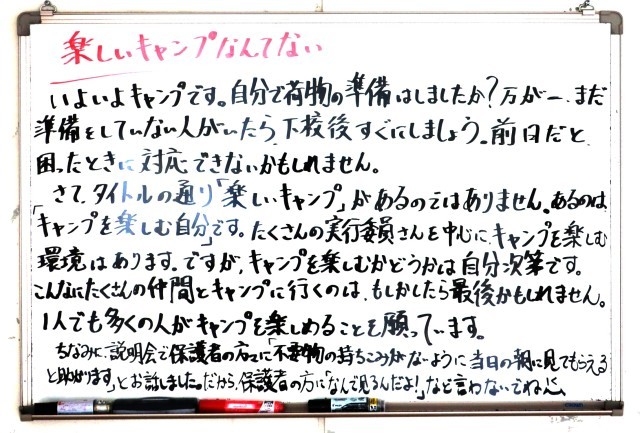 楽しいキャンプなんてない
いよいよキャンプです。自分で荷物の準備はしましたか?万が一、まだ
準備をしていない人がいたら、下校後すぐにしましょう。前日だと、
困ったときに対応できないかもしれません。
さて、タイトルの通り「楽しいキャンプ」があるのではありません。あるのは、
「キャンプを楽しむ自分」です。たくさんの実行委員さんを中心に、キャンプを楽しむ
環境はあります。ですが、キャンプを楽しむかどうかは自分次第です。
こんなにたくさんの仲間とキャンプに行くのは、もしかしたら最後かもしれません。
1人でも多くの人がキャンプを楽しめることを願っています。
ちなみに、説明会で保護者の方々に「不要物の持ちこみがないように当日の朝に見てもらえる
と助かります」とお話しました。だから、保護者の方に「なんで見るんだよ!」など言わないでね